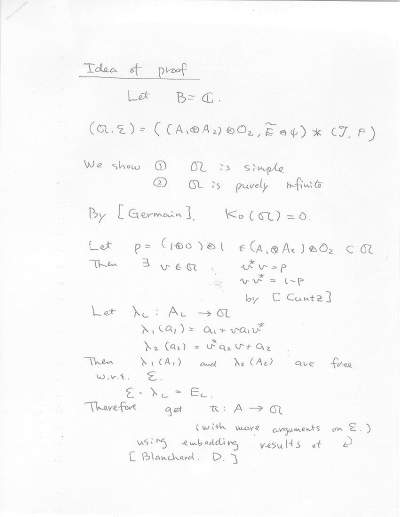 Idea of proof
Let B = ℂ.
(𝔄, ℰ) = ((A₁⊕A₂)⊗O₂, Ẽ⊗ψ) * (𝒯, ρ)
We show ① 𝔄 is simple
② 𝔄 is purely infinite
By [Germain], K₀(𝔄) = 0.
Let p = (1⊕0)⊗1 ∈ (A₁⊕A₂)⊗O₂ ⊂ 𝔄
Then ∃ v ∈ 𝔄 v*v = p
vv* = 1-p
by [Cuntz]
Let λ_ι : A_ι → 𝔄
λ₁(a₁) = a₁ + va₁v*
λ₂(a₂) = v*a₂v + a₂
Then λ₁(A₁) and λ₂(A₂) are free
w.r.t. ℰ.
ℰ∘λ_ι = E_ι.
Therefore get π : A → 𝔄
(with more arguments on ℰ.)
using embedding results of
[Blanchard. D.]